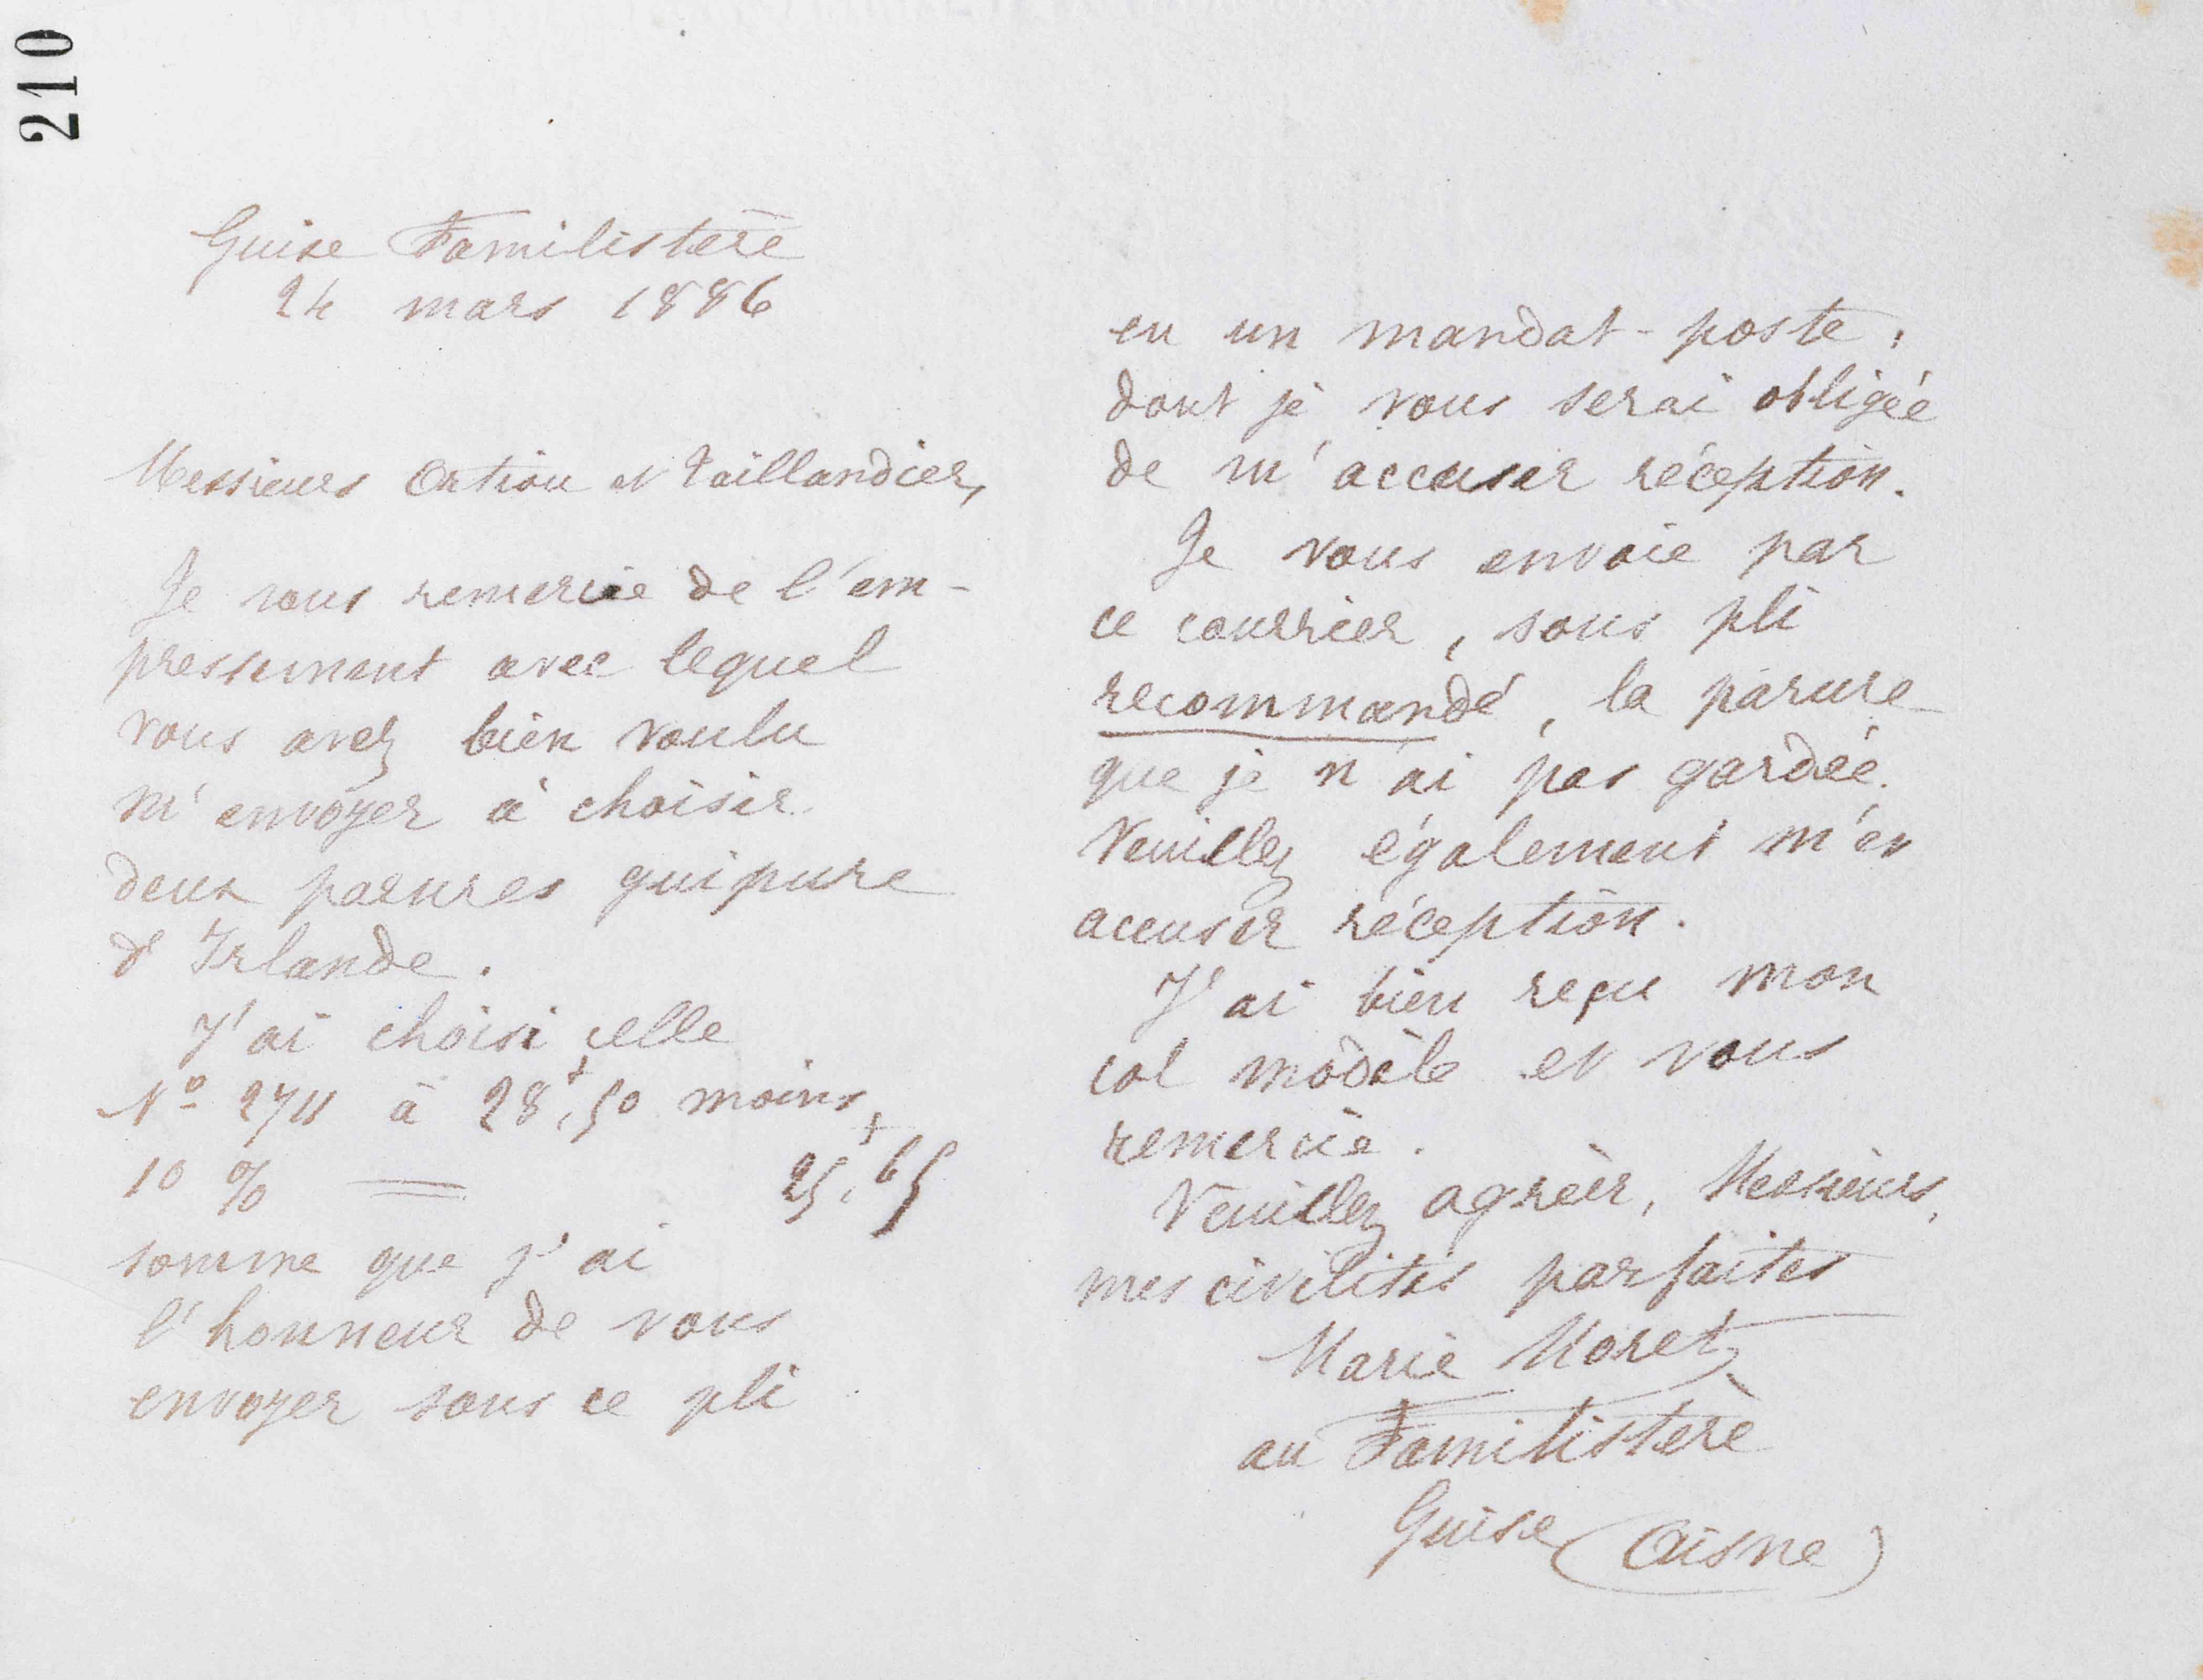 210
Guise Familistère
24 mars 1886
Messieurs Artion et Taillandier,
Je vous remercie de l'em-
pressement avec lequel
vous avez bien voulu
m'envoyer à choisir
deux parures guipure
d'Irlande.
J'ai choisi celle
Nº 2711 à 28f,50 moins
10 % = 25f,65
somme que j'ai
l'honneur de vous
envoyer sous ce pli
en un mandat-poste,
dont je vous serai obligée
de m'accuser réception.
Je vous envoie par
ce courrier, sous pli
recommandé, la parure
que je n'ai pas gardée.
Veuillez également m'en
accuser réception.
J'ai bien reçu mon
col modèle et vous
remercie.
Veuillez agréer, Messieurs,
mes civilités parfaites
Marie Moret
au Familistère
Guise (Aisne)